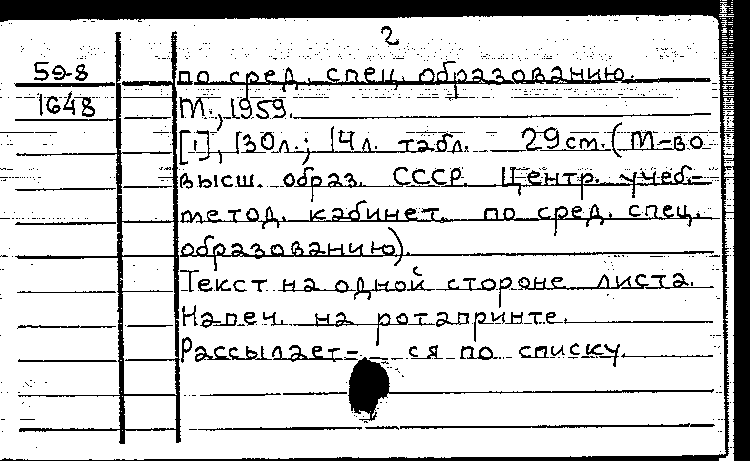 2
59-8 по сред. спец. образованию.
1648 М., 1959.
[1], 130л.; 14л. табл. 29см. (М-во
высш. образ. СССР. Центр. учеб.-
метод. кабинет. по сред. спец.
образованию).
Текст на одной стороне листа.
Напеч. на ротапринте.
Рассылает- ся по списку.